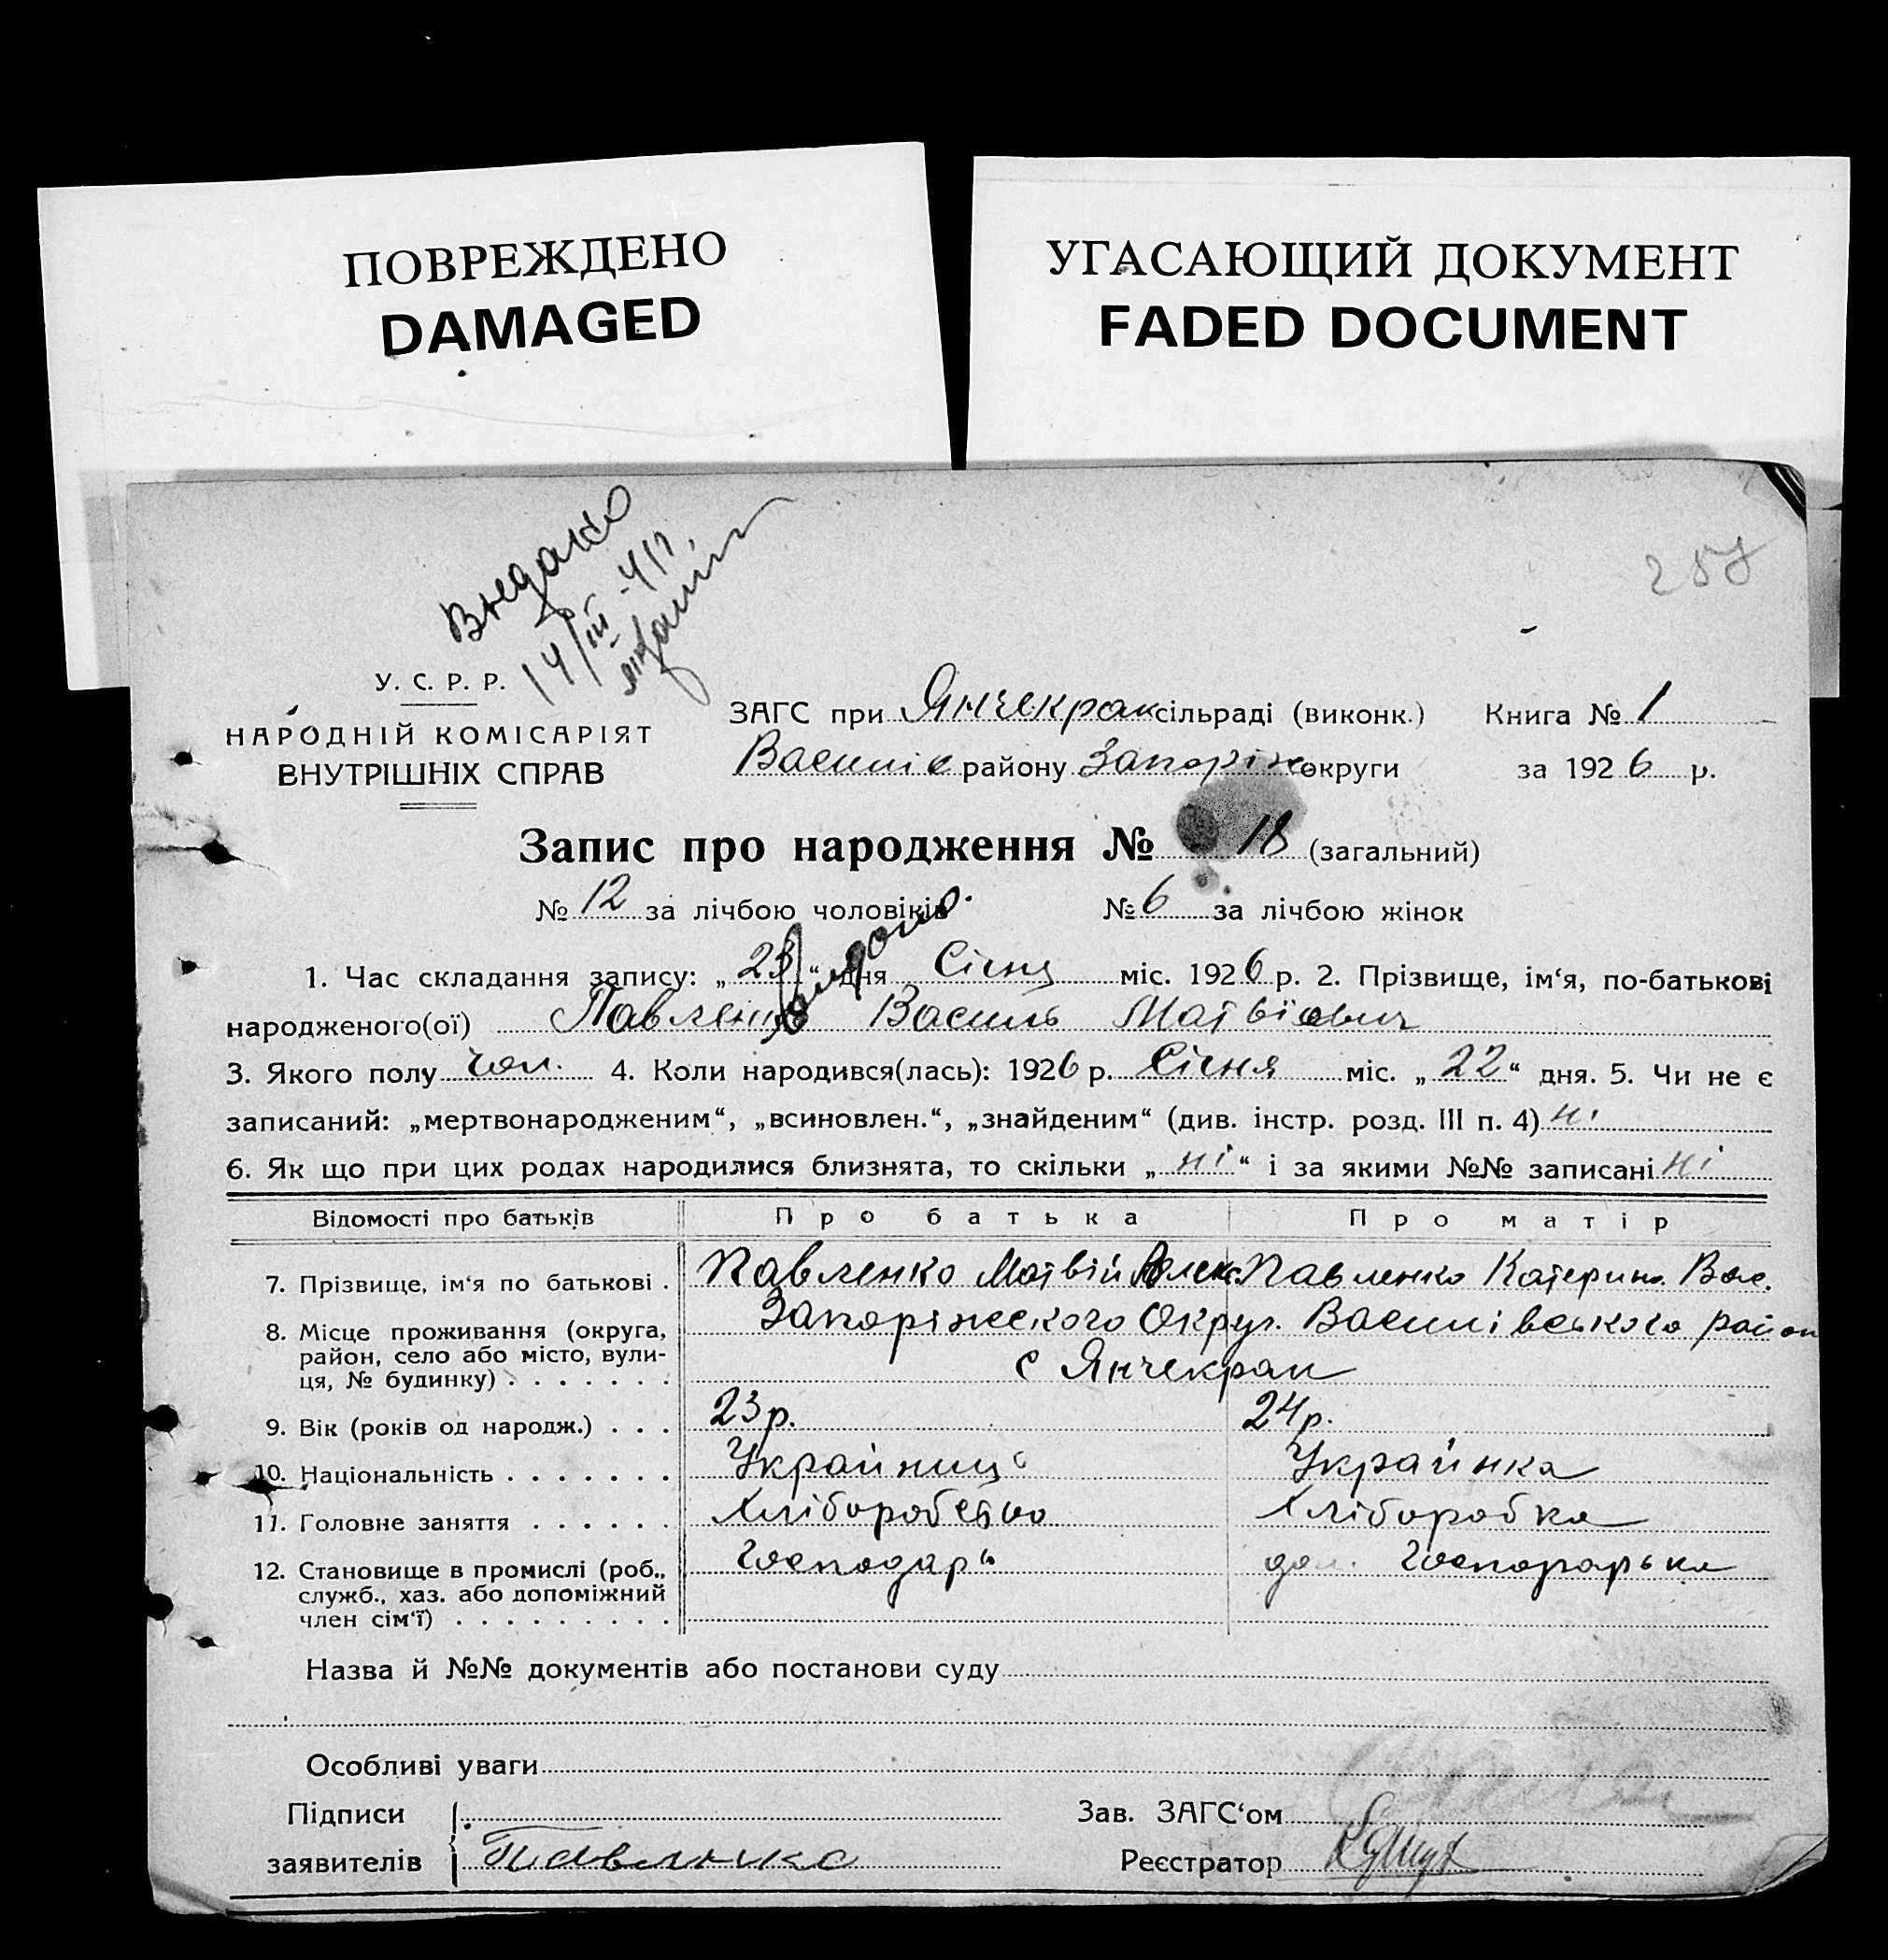 ПОВРЕЖДЕНО
DAMAGED
УГАСАЮЩИЙ ДОКУМЕНТ
FADED DOCUMENT
14/III-41р.
У. С. Р. Р.
НАРОДНІЙ КОМІСАРІЯТ
ВНУТРІШНІХ СПРАВ
ЗАГС при Янчекрак сільраді (виконк.) Книга № 1
Василів району Запоріж округи за 1926 р.
Запис про народження № 18 (загальний)
№ 12 за лічбою чоловіків № 6 за лічбою жінок
1. Час складання запису: „23“ дня Січня міс. 1926 р. 2. Прізвище, ім‘я, по-батькові
народженого(ої) Павленко Василь Матвієвич
3. Якого полу чол. 4. Коли народився(лась): 1926 р. Січня міс. „22“ дня. 5. Чи не є
записаний: „мертвонародженим“, „всиновлен.“, „знайденим“ (див. інстр. розд. III п. 4) ні
6. Як що при цих родах народилися близнята, то скільки „ні“ і за якими №№ записані ні
Відомості про батьків Про батька Про матір
7. Прізвище, ім‘я по батькові . Павленко Матвій Олекс. Павленко Катерина Вас.
8. Місце проживання (округа, Запоріжського Округ. Василівського район
район, село або місто, вули-
ця, № будинку) . . . . . . . с Янчекрак
9. Вік (років од народж.) . . . 23р. 24р.
10. Національність . . . . . . . Українць Українка
11. Головне заняття . . . . . . Хліборобство Хліборобка
12. Становище в промислі (роб., Господарь дом. Господарька
служб., хаз. або допоміжний
член сім‘ї) . . . . . . . . .
Назва й №№ документів або постанови суду
Особливі уваги
Підписи Зав. ЗАГС‘ом
заявителів Павленко Реєстратор